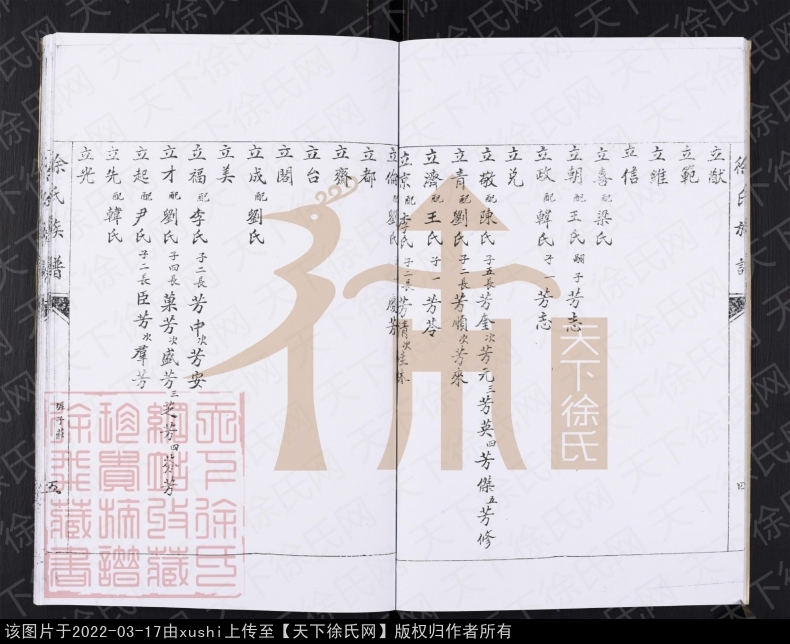 徐氏族譜
四
立猷
立範
立維
立信
立喜 配 梁氏
立朝 配 王氏 嗣子 芳志
立政 配 韓氏 子一 芳志
立兌
立敬 配 陳氏 子五長 芳奎 次 芳元 三 芳英 四 芳傑 五 芳修
立青 配 劉氏 子二長 芳順 次 芳來
立濟 配 王氏 子一 芳苓
立京 配 李氏 子二長 芳青 次
立倫 配 劉氏 慶芳
立都
立齊
立台
立閣
立成 配 劉氏
立美
立福 配 李氏 子二長 芳中 次 芳安
立才 配 劉氏 子四長 菓芳 次 盛芳 三 芝芳 四 芬芳
立起 配 尹氏 子二長 臣芳 次 羣芳
立先 配 韓氏
立光
徐氏族譜
五
天下徐氏
天下徐氏
網站收藏
珍貴族譜
徐飛藏書
该图片于2022-03-17由xushi上传至【天下徐氏网】版权归作者所有